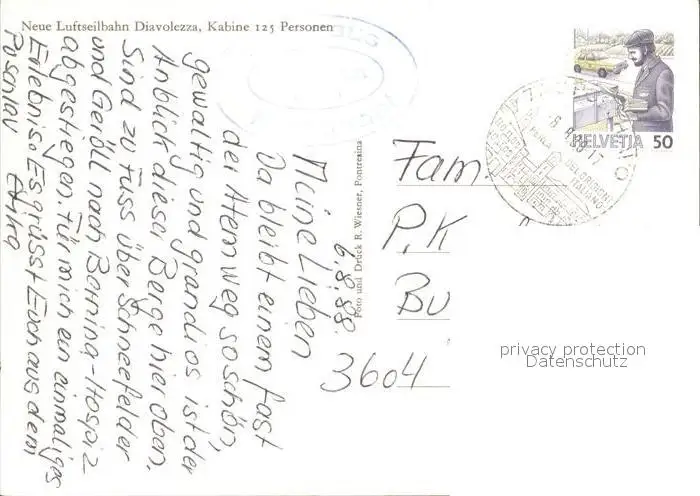 Neue Luftseilbahn Diavolezza, Kabine 125 Personen
6.8.88.
Meine Lieben
Da bleibt einem fast
der Atem weg so schön,
gewaltig und grandios ist der
Anblick dieser Berge hier oben.
Sind zu Fuss über Schneefelder
und Geröll nach Bernina-Hospiz
abgestiegen. Für mich ein einmaliges
Erlebnis. Es grüsst Euch aus dem
Puschlav
Foto und Druck R. Wiesner, Pontresina
HELVETIA 50
LA PERLA DEL GRIGIONI ITALIANO
Fam.
P. K
Bu
3604
privacy protection
Datenschutz